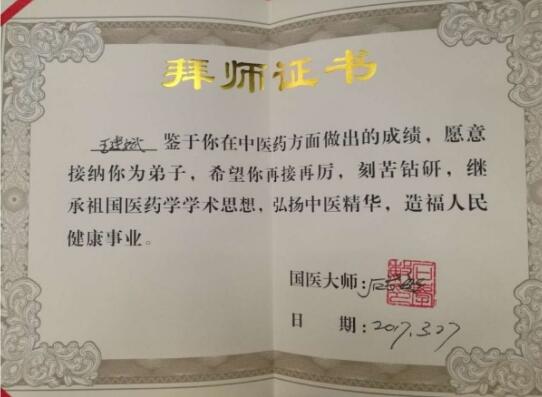 拜师证书
王建斌 鉴于你在中医药方面做出的成绩，愿意
接纳你为弟子，希望你再接再厉，刻苦钻研，继
承祖国医药学学术思想，弘扬中医精华，造福人民
健康事业。
国医大师：
日 期：2017.3.27